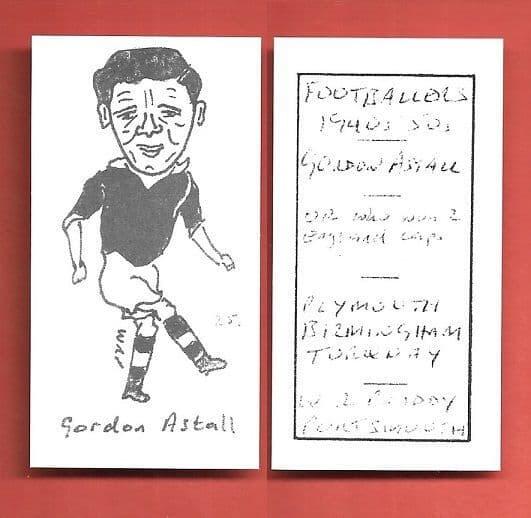 Gordon Astall
FOOTBALLERS
1940s 50s
GORDON ASTALL
OR who won 2
England caps
PLYMOUTH
BIRMINGHAM
TORQUAY
PORTSMOUTH